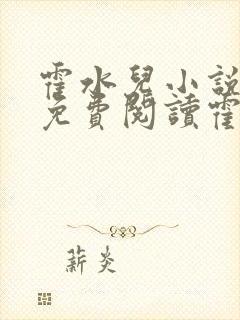 霍水兒小說
免費閱讀霍
薪炎